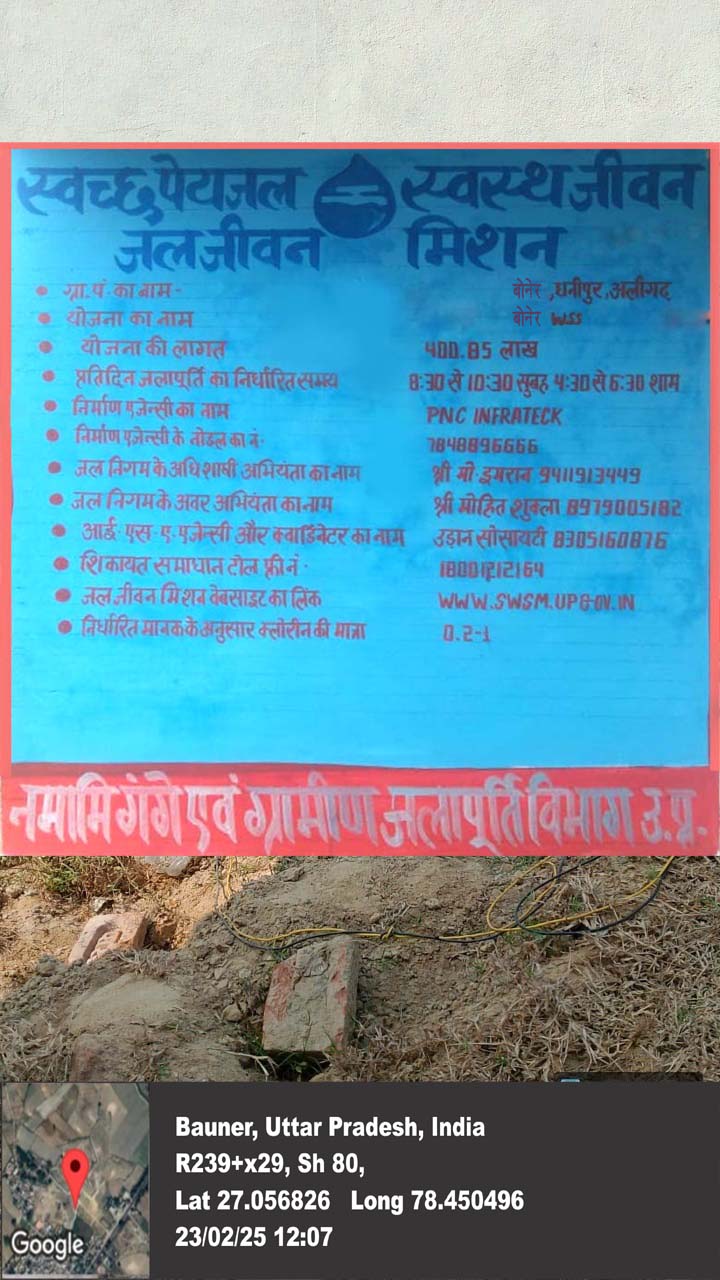 स्वच्छ पेयजल स्वस्थ जीवन
जल जीवन मिशन
• ग्रा.पं. का नाम - बोनेर ,धनीपुर,अलीगढ़
• योजना का नाम बोनेर WSS
• योजना की लागत 400.85 लाख
• प्रतिदिन जलापूर्ति का निर्धारित समय 8:30 से 10:30 सुबह 4:30 से 6:30 शाम
• निर्माण एजेन्सी का नाम PNC INFRATECK
• निर्माण एजेन्सी के नोडल का नं. 7848896666
• जल निगम के अधिशाषी अभियंता का नाम श्री मो. इमरान 9411913449
• जल निगम के अवर अभियंता का नाम श्री मोहित शुक्ला 8979005182
• आई. एस. ए. एजेन्सी और क्वार्डिनेटर का नाम उड़ान सोसायटी 8305160876
• शिकायत समाधान टोल फ्री नं. 18001212164
• जल जीवन मिशन वेबसाइट का लिंक WWW.SWSM.UPGOV.IN
• निर्धारित मानक के अनुसार क्लोरीन की मात्रा 0.2-1
नमामि गंगे एवं ग्रामीण जलापूर्ति विभाग उ.प्र.
Bauner, Uttar Pradesh, India
R239+x29, Sh 80,
Lat 27.056826 Long 78.450496
23/02/25 12:07
Google